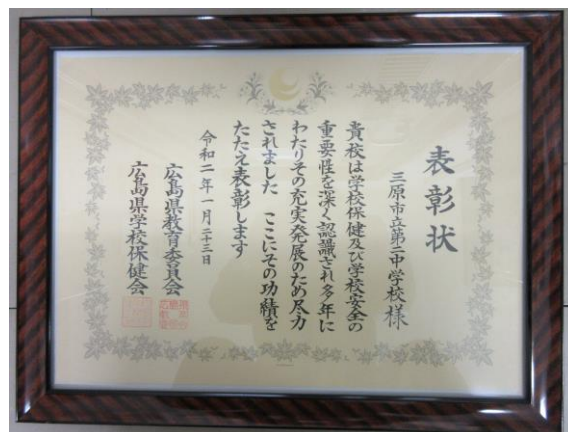 表彰状
三原市立第二中学校様
貴校は学校保健及び学校安全の
重要性を深く認識され多年に
わたりその充実発展のため尽力
されました ここにその功績を
たたえ表彰します
令和二年一月二十三日
広島県教育委員会
広島県学校保健会